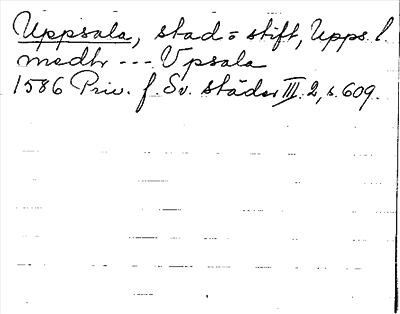 Uppsala, stad = stift, Upps. l.
medh --- Vpsala
1586 Priv. f. Sv. städer III. 2, s. 609.